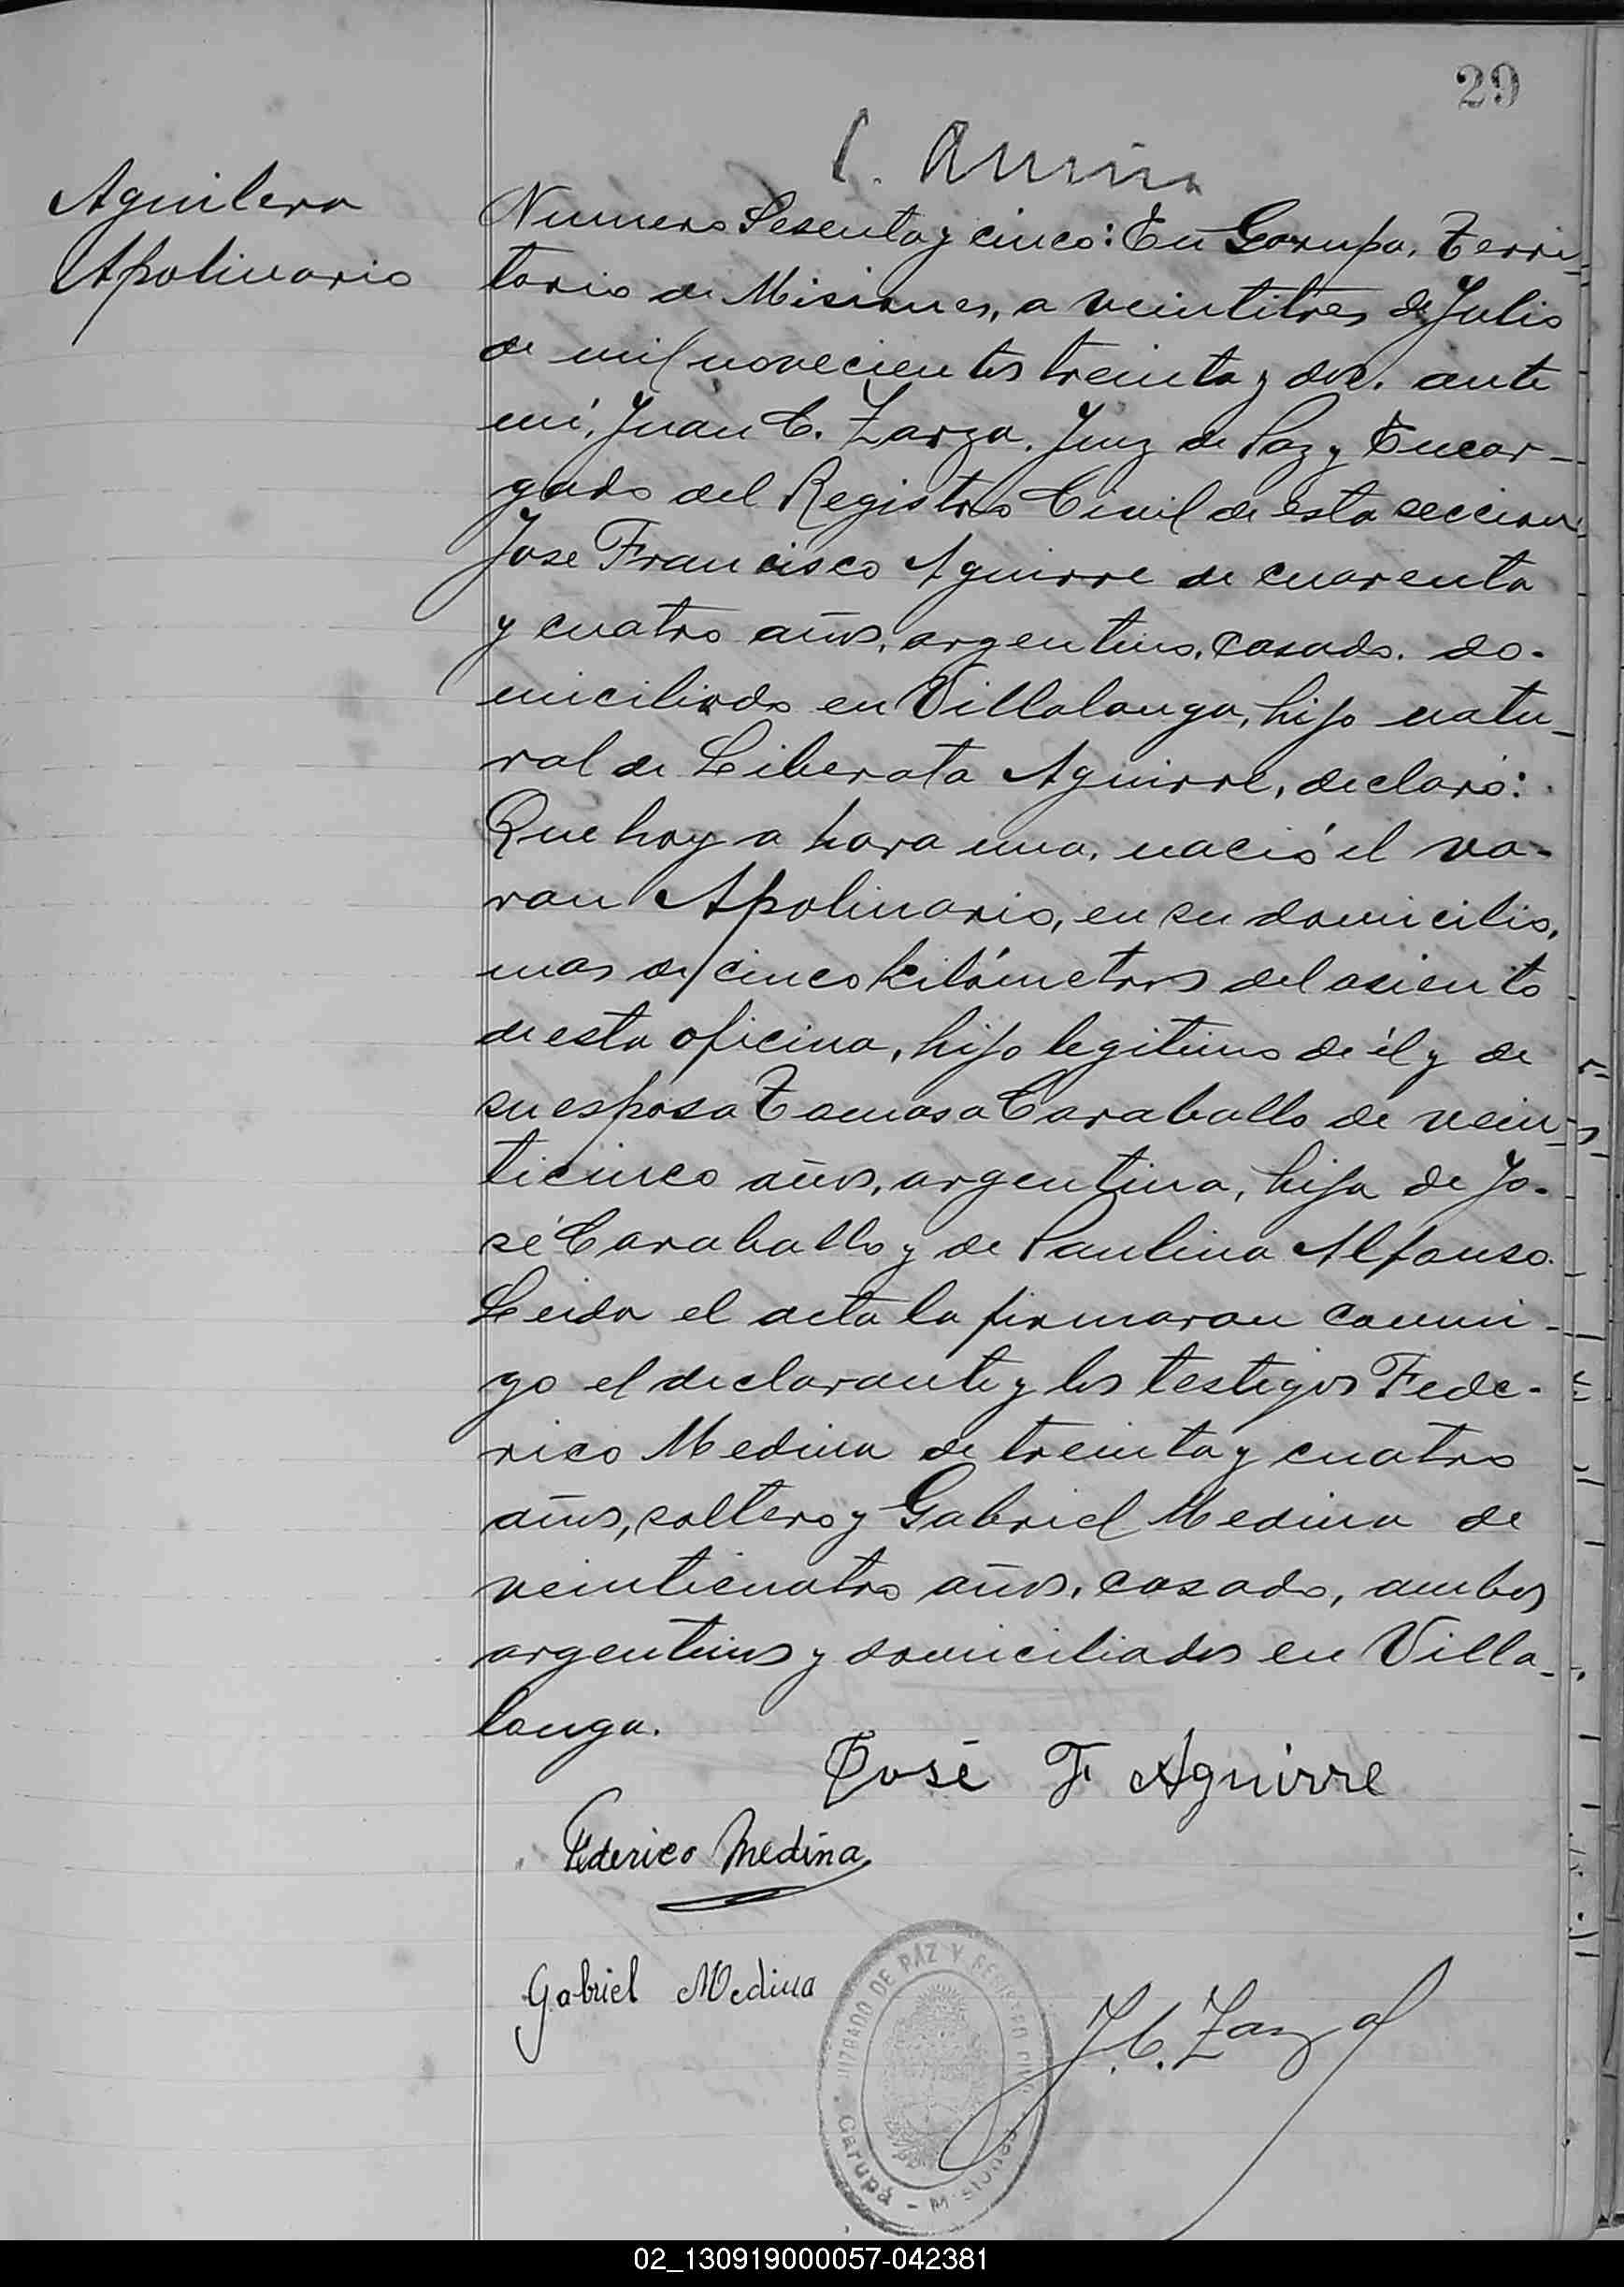 29
Aguilera
Apolinario
Numero Sesenta y cinco: En Garupa, Terri-
torio de Misiones, a veintitres de Julio
de mil novecientos treinta y dos. ante
mí, Juan C. Zarza, Juez de Paz y Encar-
gado del Registro Civil de esta seccion
Jose Francisco Aguirre de cuarenta
y cuatro años, argentino, casado. do-
miciliado en Villalonga, hijo natu-
ral de Liberata Aguirre, declaró:
Que hoy a hora una, nació el va-
ron Apolinario, en su domicilio,
mas de cinco kilómetros del asiento
de esta oficina, hijo legitimo de él y de
su esposa Tomasa Caraballo de vein-
ticinco años, argentina, hija de Jo-
sé Caraballo y de Paulina Alfonso.
Leida el acta la firmaron conmi-
go el declarante y los testigos Fede-
rico Medina de treinta y cuatro
años, soltero y Gabriel Medina de
veinticuatro años, casado, ambos
argentinos y domiciliados en Villa-
longa.
José F Aguirre
Federico Medina
Gabriel Medina
J. C. Zarza
JUZGADO DE PAZ Y REGISTRO CIVIL
Garupá - Misiones
02_130919000057-042381